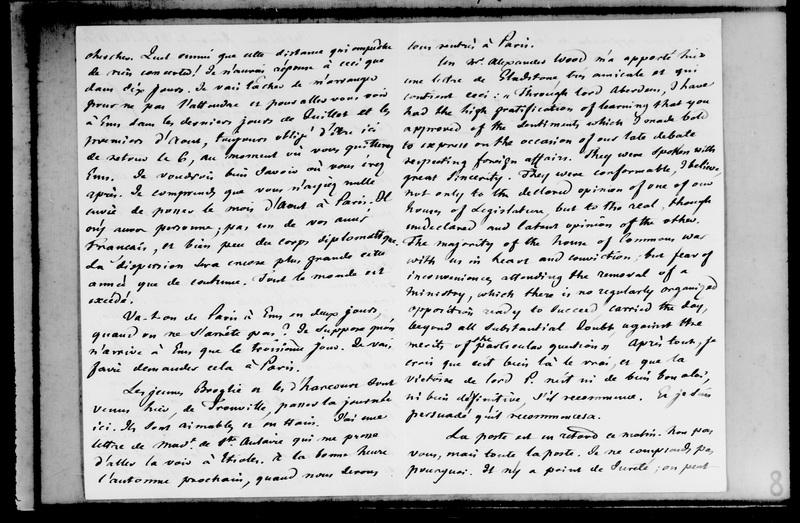 cherches. Quel ennui que cette distance qui empêche
de rien concerter ! Je n'aurai réponse à ceci que
dans six jours. Je vais tâcher de m'arranger
pour ne pas l'attendre et pour aller vous voir
à Ems dans les derniers jours de Juillet et les
premiers d'Aout, toujours obligé d'être ici
de retour le 6, au moment où vous quitterez
Ems. Je voudrois bien savoir où vous irez
après. Je comprends que vous n'ayez nulle
envie de passer le mois d'Aout à Paris. Il
n'y aura personne ; pas un de vos amis
Français, et bien peu du corps diplomatique
La dispersion sera encore plus grande cette
année que de coutume. Tout le monde est
excédé.
Va-t-on de Paris à Ems en deux jours,
quand on ne s'arrête pas ? Je suppose qu'on
n'arrive à Ems que le troisième jour. Je vais
faire demander cela à Paris.
Les jeunes Broglie et les d'Harcourt sont
venus hier, de Trouville, passer la journée
ici. Ils sont aimables et en train. J'ai une
lettre de Mad. de Ste Aulaire qui me presse
d'aller la voir à Etioles. A la bonne heure
l'automne prochain, quand nous serons
tous rentrés à Paris.
Un Mr. Alexander Wood m'a apporté hier
une lettre de Gladstone bien amicale et qui
contient ceci : "Through lord Aberdeen, I have
had the high gratification of learning that you
approved of the sentiments which I made bold
to express on the occasion of our late debate
respecting foreign affairs. They were spoken with
great sincerity. They were conformable, I believe,
not only to the declared opinion of one of our
houses of Legislature, but to the real, though
undeclared and latent opinion of the other.
The majority of the house of Commons was
with us in heart and conviction ; but fear of
inconveniences attending the removal of a
ministry, which there is no regularly organized
opposition ready to succeed carried the day,
beyond all substantial doubt against the
merits of the particular question." Après tout, je
crois que c'est bien là le vrai, et que la
victoire de lord P. n'est ni de bien bon aloi,
ni bien définitive, s'il recommence. Et je suis
persuadé qu'il recommencera.
La poste est en retard ce matin. Non pas
vous, mais toute la poste. Je ne comprends pas
pourquoi. Il n'y a point de sureté ; on peut
8